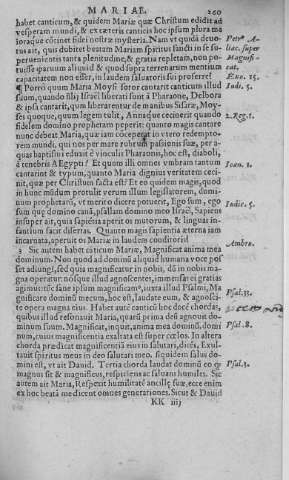 MARIAE. 260
habet canticum, & quidem Mariæ quæ Christum edidit ad
vesperam mundi, & ex cæteris canticis hoc ipsum plura ma
ioraque côcinet fide nostra mysteria. Nam vt quidā deuo-
tus ait, quis dubitet beatam Mariam spiritus sancti in se su-
peruenientis tanta plenitudine, & gratia repletam, non po-
tuisse paruum aliquid, & quod supra terrenarum mentium
capacitatem non esset, in laudem saluatoris sui proferre?
¶ Porrò quum Maria Moysi soror cantarit canticum illud
suum, quando filij Israel liberati sunt à Pharaone, Delbora
& ipsa cantarit, quum liberarentur de manibus Sisaræ, Moy-
ses quoque, quum legem tulit, Annaque cecinerit quando
fidelem domino prophetam peperit: quanto magis cantare
nunc debuit Maria, quæ iam in vtero redempto-
rem mundi, qui nos per mare rubrum passionis suæ, per a-
quas baptismi eduxit è vinculis Pharaonis, hoc est, diaboli,
è tenebris Ægypti? Et quum illi omnes vmbram tantum
cantarint & typum, quanto Maria dignius veritatem ceci-
nit, quæ per Christum facta est? Et eo quidem magis, quod
in hunc mūdum protulit verum illum legislatorem, domi-
num prophetarū, vt meritò dicere potuerit, Ego sum, ego
sum quę domino canā, psallam domino meo Israel, Sapiens
insuper ait, quia sapiētia aperit os mutorum, & linguas in-
fantium facit disertas. Quanto magis sapientia æterna iam
incarnata, aperuit os Mariæ in laudem conditoris!
2 Sic autem habet cāticum Mariæ, Magnificat anima mea
dominum. Non quod ad dominū aliquid humana voce pos
set adiungi, sed quia magnificatur in nobis, dū in nobis ma-
gna operatur: nosque illud agnoscentes, immensas ei gratias
agimus: et sane ipsum magnificam', iuxta illud Psalmi, Ma
gnificate dominū mecum, hoc est, laudate eum, & agnosci-
te opera magna eius. Habet autē canticū hoc decē chordas,
quibus illud resonauit Maria, quarū prima deū agnouit do-
minum suum. Magnificat, inquit, anima mea dominū, domi
num, cuius magnificentia exaltata est super cælos. In altera
chorda prædicat magnificentiā eius in salutari, dicēs, Exul-
tauit spiritus meus in deo salutari meo. siquidem salus do-
mini est, vt ait Dauid. Tertia chorda laudat dominū eo qđ
magnus sit & magnificus, respiciens ac saluans humiles. Sic
autem ait Maria, Respexit humilitatē ancillę suæ, ecce enim
ex hoc beatā me dicent omnes generationes. Sicut & Dauid
KK iiij
Petr' A-
bac. super
Magnifi-
cat.
Exo. 15.
Iudi. 5.
2. Reg. 1.
Ioan. 1.
Iudic. 5.
Ambro.
Psal. 33.
Psal. 8.
Psal. 3.